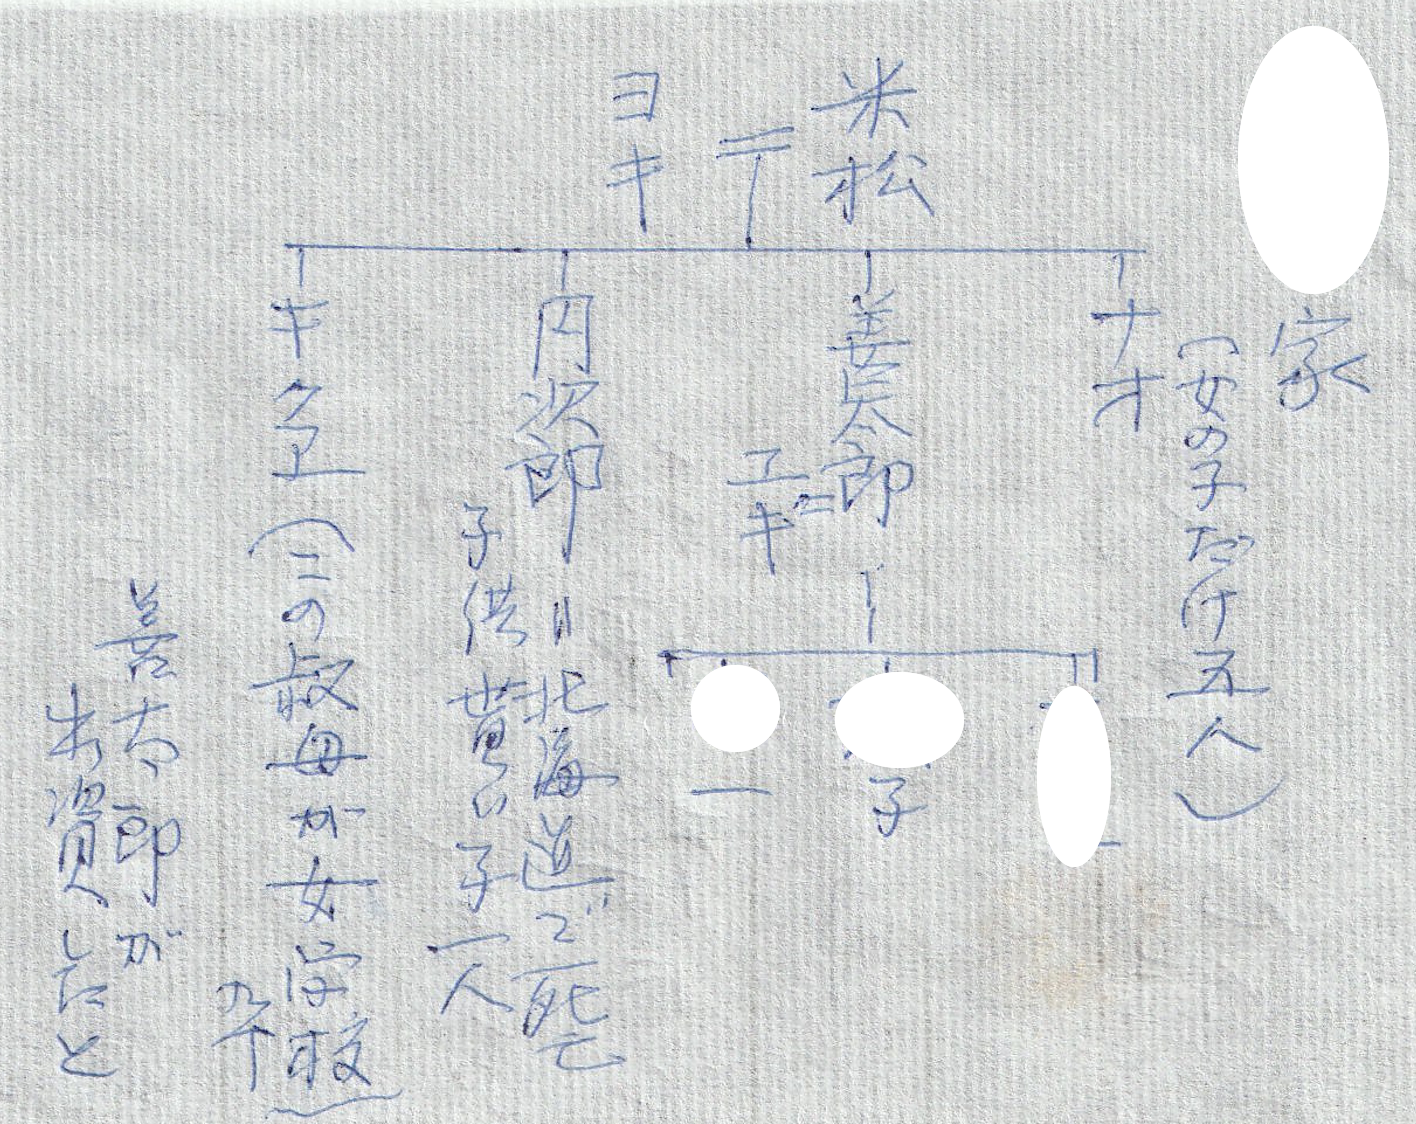 家
米松
＝
ヨキ
ナオ
（女の子だけ五人）
善太郎
＝ユキ
子
一
円次郎＝北海道で死亡
子供貰い子一人
キクヱ（この叔母が女学校
卆
善太郎が
出資したと